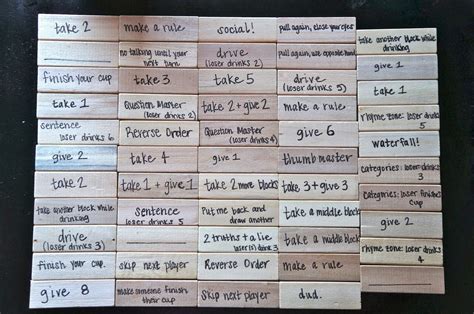 take 2
___________
finish your cup
take 1
sentence
loser drinks 6
give 2
take 2
take another block while
drinking
drive
(loser drinks 3)
finish your cup.
give 8
make a rule
no talking until your
next turn
take 3
Question Master
(loser drinks 2)
Reverse Order
take 4
take 1 + give 1
sentence
loser drinks 5
___________
skip next player
make someone finish
their cup
social!
drive
(loser drinks 2)
take 5
take 2 + give 2
Question Master
(loser drinks 4)
give 1
take 2 more blocks
Put me back and
draw another
2 truths + a lie
loser drinks 3
Reverse Order
Skip next player
pull again, close your eyes
pull again, use opposite hand
drive
(loser drinks 5)
make a rule
give 6
thumb master
take 3 + give 3
take a middle block
take a middle block
make a rule
dud.
take another block while
drinking
give 1
take 1
rhyme zone: loser drinks
5
waterfall!
categories: loser drinks
3
Categories: loser finishes
cup
give 2
rhyme zone: loser drinks
4
___________